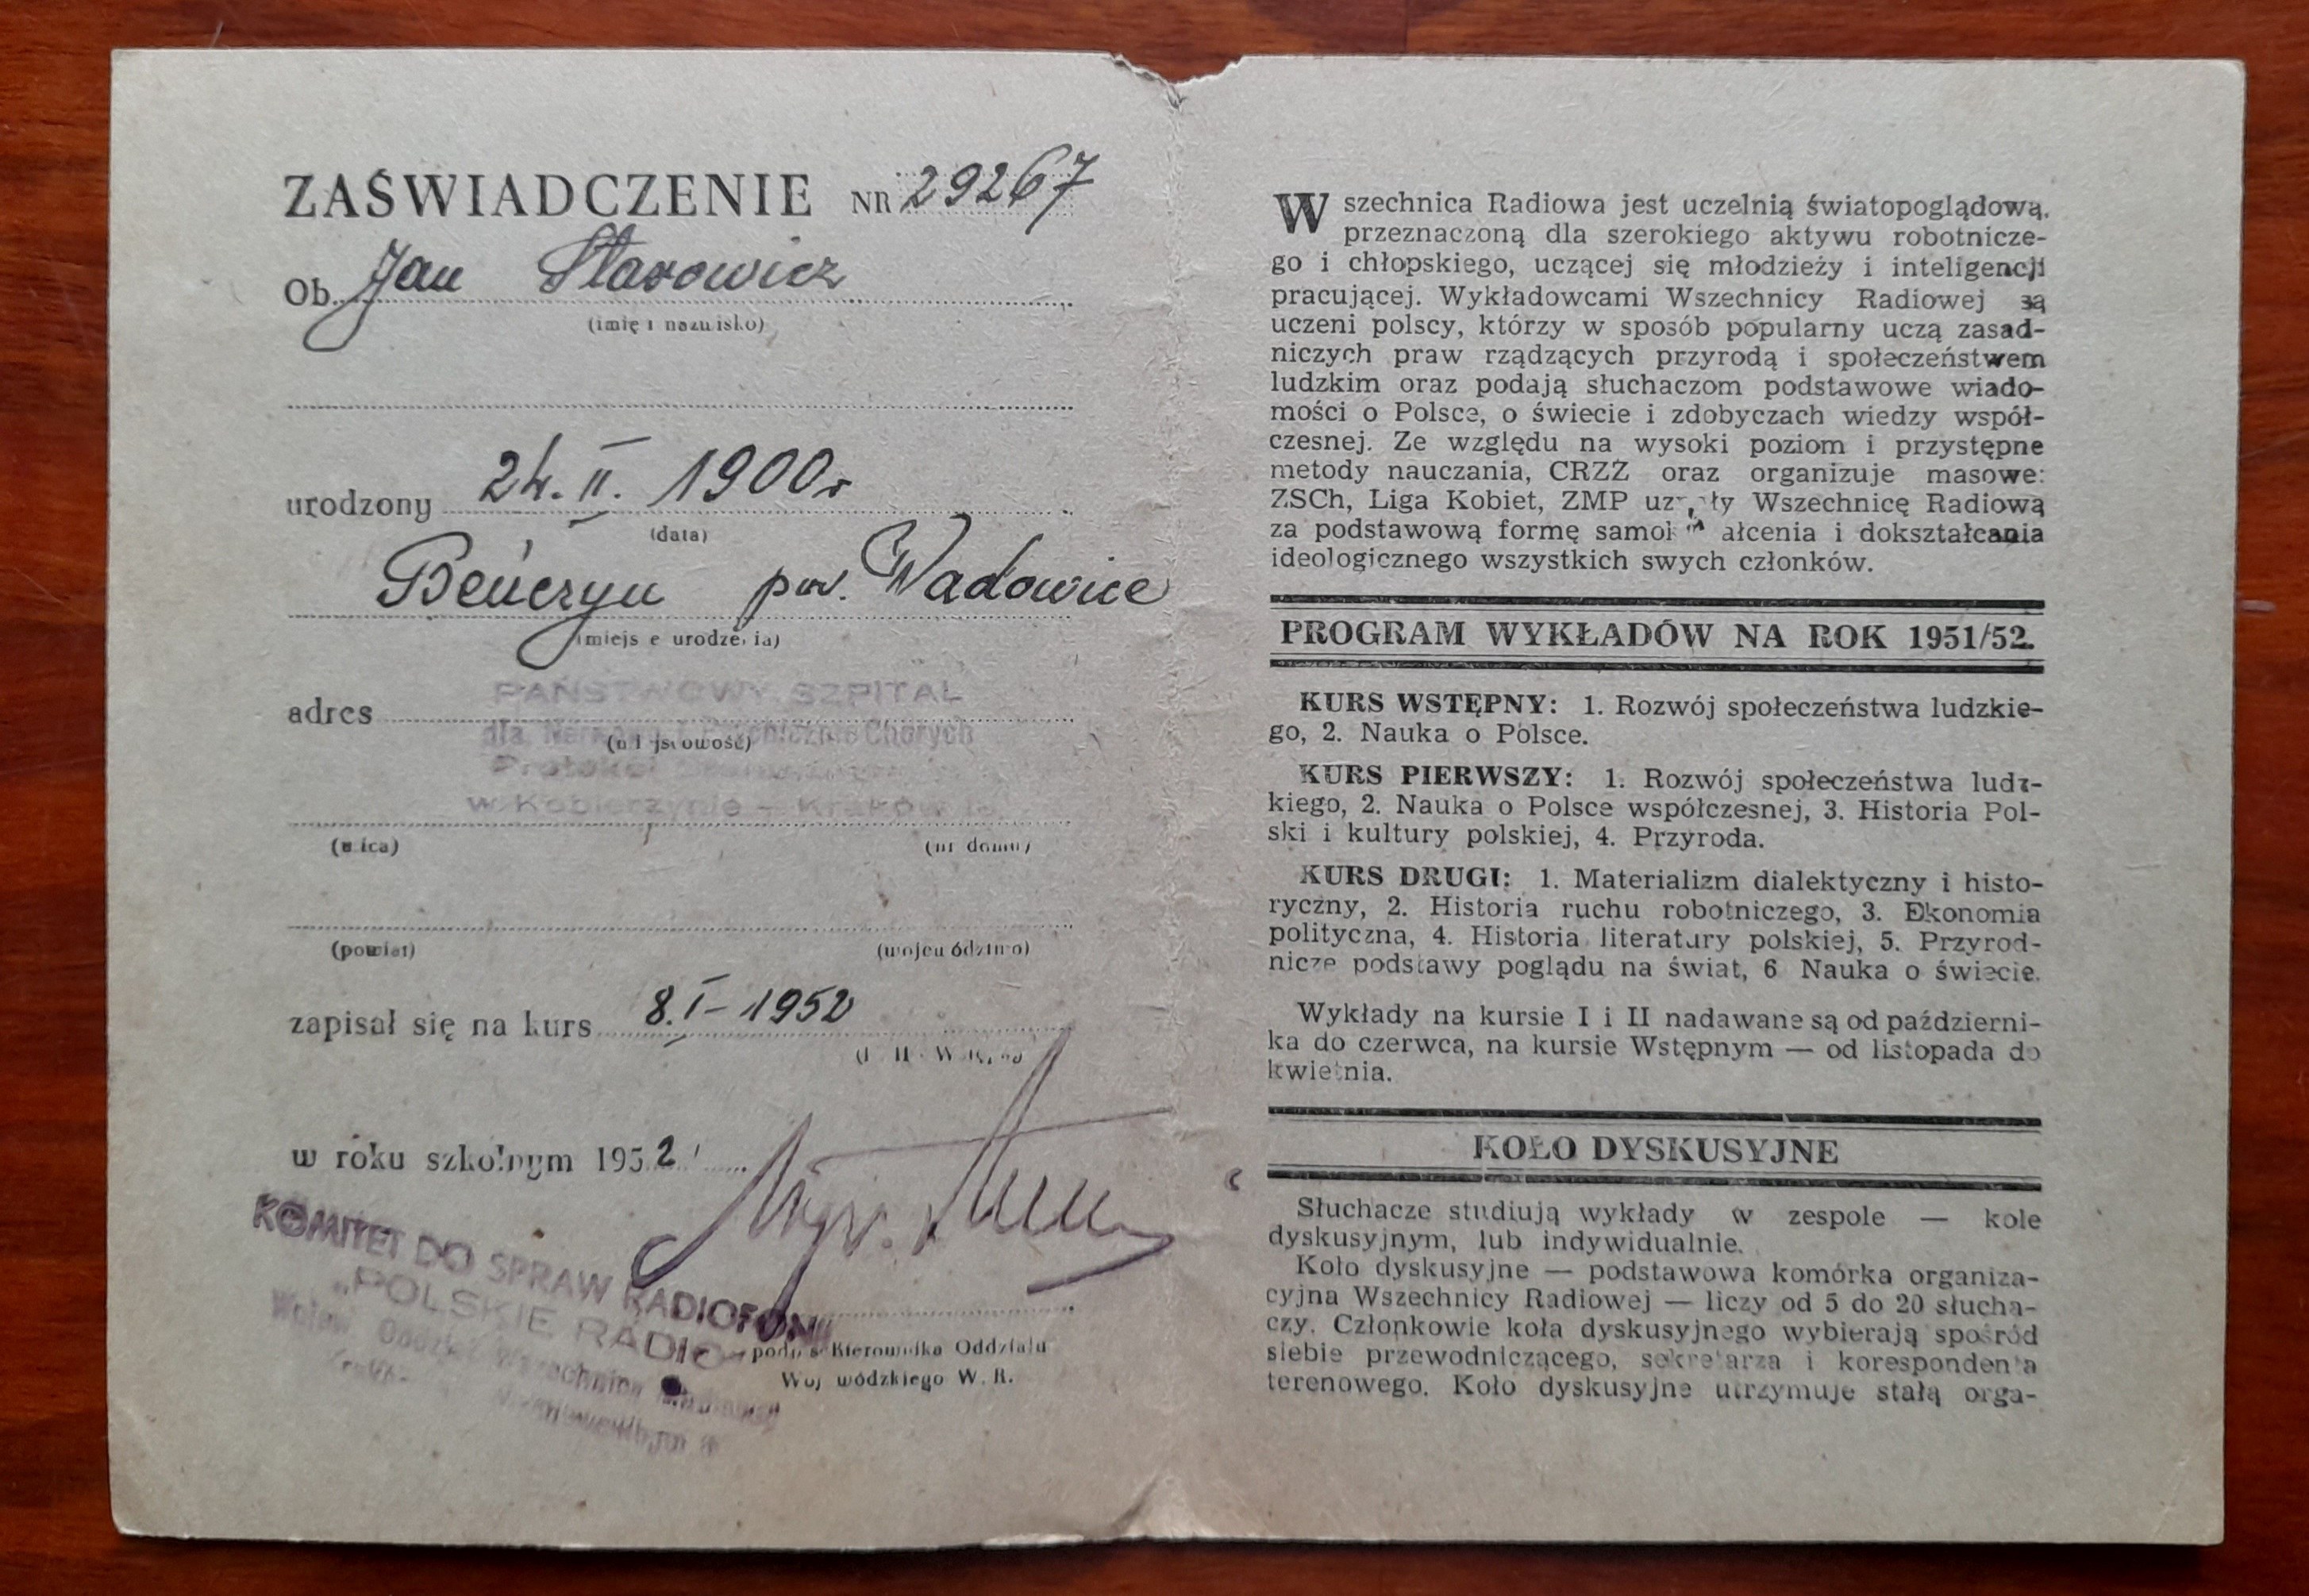 ZAŚWIADCZENIE NR 29267
Ob. Jan Starowicz
(imię i nazwisko)
urodzony 24. II. 1900 r
(data)
Bęńczyn pow. Wadowice
(miejs e urodze ia)
PAŃSTWOWY SZPITAL
adres
dla Nerwowo i Psychicznie Chorych
w Kobierzynie – Kraków
(nr domu)
(powiat) (województwo)
zapisał się na kurs 8. I – 1952
w roku szkolnym 1952
KOMITET DO SPRAW RADIOFONII
„POLSKIE RADIO"
podpis Kierownika Oddziału
Woj wódzkiego W. R.
Wszechnica Radiowa jest uczelnią światopoglądową,
przeznaczoną dla szerokiego aktywu robotnicze-
go i chłopskiego, uczącej się młodzieży i inteligencji
pracującej. Wykładowcami Wszechnicy Radiowej są
uczeni polscy, którzy w sposób popularny uczą zasad-
niczych praw rządzących przyrodą i społeczeństwem
ludzkim oraz podają słuchaczom podstawowe wiado-
mości o Polsce, o świecie i zdobyczach wiedzy współ-
czesnej. Ze względu na wysoki poziom i przystępne
metody nauczania, CRZZ oraz organizuje masowe:
ZSCh, Liga Kobiet, ZMP uznały Wszechnicę Radiową
za podstawową formę samokształcenia i dokształcania
ideologicznego wszystkich swych członków.
PROGRAM WYKŁADÓW NA ROK 1951/52.
KURS WSTĘPNY: 1. Rozwój społeczeństwa ludzkie-
go, 2. Nauka o Polsce.
KURS PIERWSZY: 1. Rozwój społeczeństwa ludz-
kiego, 2. Nauka o Polsce współczesnej, 3. Historia Pol-
ski i kultury polskiej, 4. Przyroda.
KURS DRUGI: 1. Materializm dialektyczny i histo-
ryczny, 2. Historia ruchu robotniczego, 3. Ekonomia
polityczna, 4. Historia literatury polskiej, 5. Przyrod-
nicze podstawy poglądu na świat, 6 Nauka o świecie.
Wykłady na kursie I i II nadawane są od październi-
ka do czerwca, na kursie Wstępnym — od listopada do
kwietnia.
KOŁO DYSKUSYJNE
Słuchacze studiują wykłady w zespole — kole
dyskusyjnym, lub indywidualnie.
Koło dyskusyjne — podstawowa komórka organiza-
cyjna Wszechnicy Radiowej — liczy od 5 do 20 słucha-
czy. Członkowie koła dyskusyjnego wybierają spośród
siebie przewodniczącego, sekretarza i korespondenta
terenowego. Koło dyskusyjne utrzymuje stałą orga-